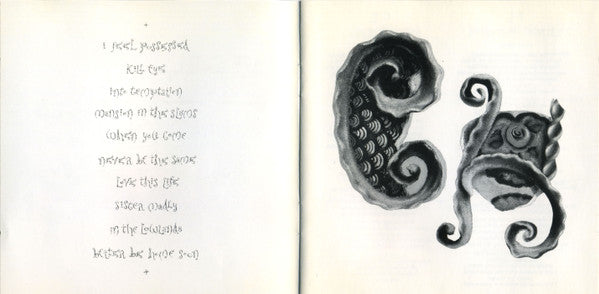 I feel possessed
kill eye
into temptation
mansion in the slums
when you come
never be the same
love this life
sister madly
in the lowlands
better be home soon